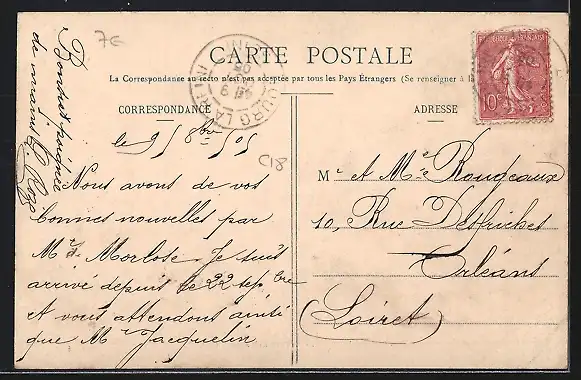 7E
CARTE POSTALE
La Correspondance au recto n'est pas acceptée par tous les Pays Étrangers (Se renseigner à la
CORRESPONDANCE
ADRESSE
RÉPUBLIQUE FRANÇAISE
10c
POSTES
C18
le 9/8bre/05
Nous avons de vos
bonnes nouvelles par
Mr de Morlose. Je suis
arrivé depuis le 22 sepbre
et vous attendons ainsi
que Mr Jacquelin
Bonne poignée
de mains
Mr et Mme Rougeaux
10, Rue Desfriches
Orléans
(Loiret)